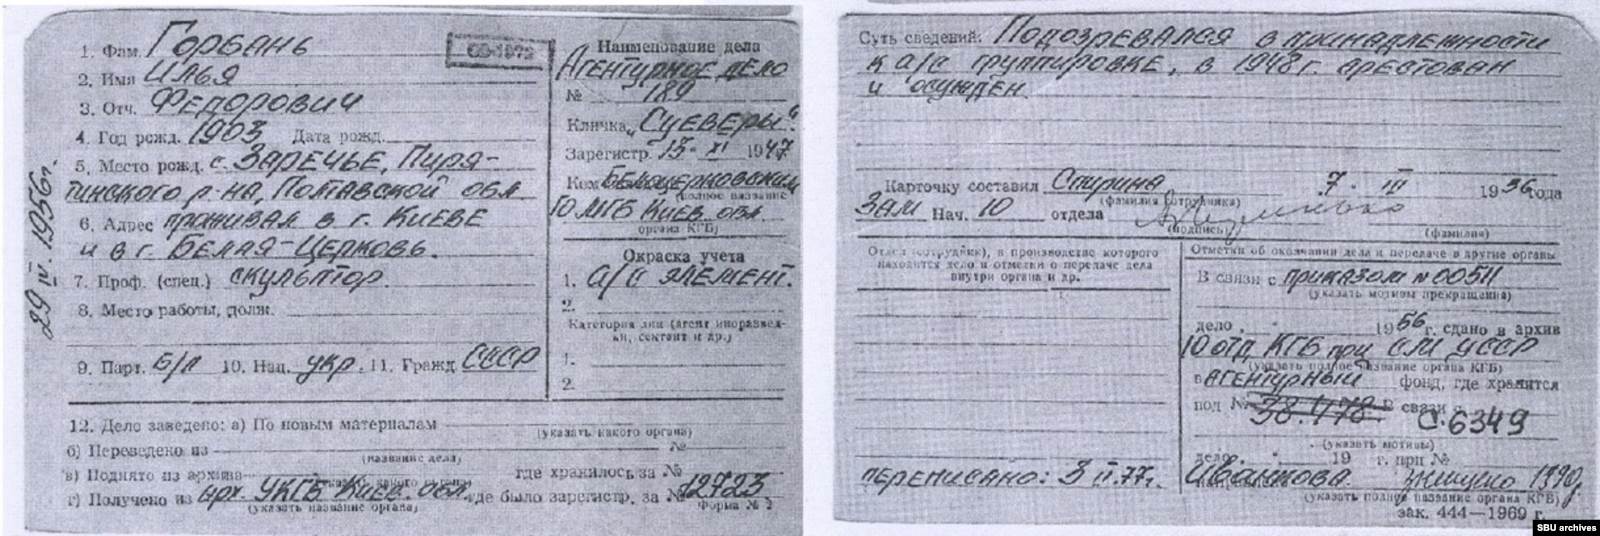 1. Фам. Горбань
2. Имя Илья
3. Отч. Федорович
4. Год рожд. 1903 Дата рожд.
5. Место рожд. с. Заречье, Пиря-
тинского р-на, Полтавской обл
6. Адрес проживал в г. Киеве
и в г. Белая-Церковь.
7. Проф. (спец.) скульптор.
8. Место работы, должн.
9. Парт. б/п 10. Нац. укр. 11. Гражд. СССР
29 IV. 1956г.
Наименование дела
Агентурное дело
№ 189
Кличка „Суеверы“
Зарегистр. 13. XI 1947
Ком Белоцерковским
(полное название
ГО МГБ Киев. обл.
органа КГБ)
Окраска учета
1. а/с элемент.
2.
Категория лиц (агент иноразвед-
ки, сектант и др.)
1.
2.
12. Дело заведено: а) По новым материалам
(указать какого органа)
б) Переведено из №
(название дела)
в) Поднято из архива где хранилось за №
г) Получено из арх. УКГБ Киев. обл. где было зарегистр. за № 12723
(указать название органа)
Форма № 2
Суть сведений: Подозревался в принадлежности
к а/с группировке, в 1948 г. арестован
и осужден.
Карточку составил Спирина 7. III 1956 года
(фамилия сотрудника)
Зам Нач. 10 отдела
(подпись) (фамилия)
Отдел (сотрудник), в производстве которого
находится дело и отметки о передаче дела
внутри органа и др.
Переписано: 3 II.77г.
Отметки об окончании дела и передаче в другие органы
В связи с приказом № 00511
(указать мотивы прекращения)
дело 1956 г. сдано в архив
10 отд КГБ при СМ УССР
(указать полное название органа КГБ)
в агентурный фонд, где хранится
под № 38.478 В связи с С. 6349
(указать мотивы)
дело 19 г. прц №
Иванкова.
(указать полное название органа КГБ)
зак. 444—1969 г.
SBU archives